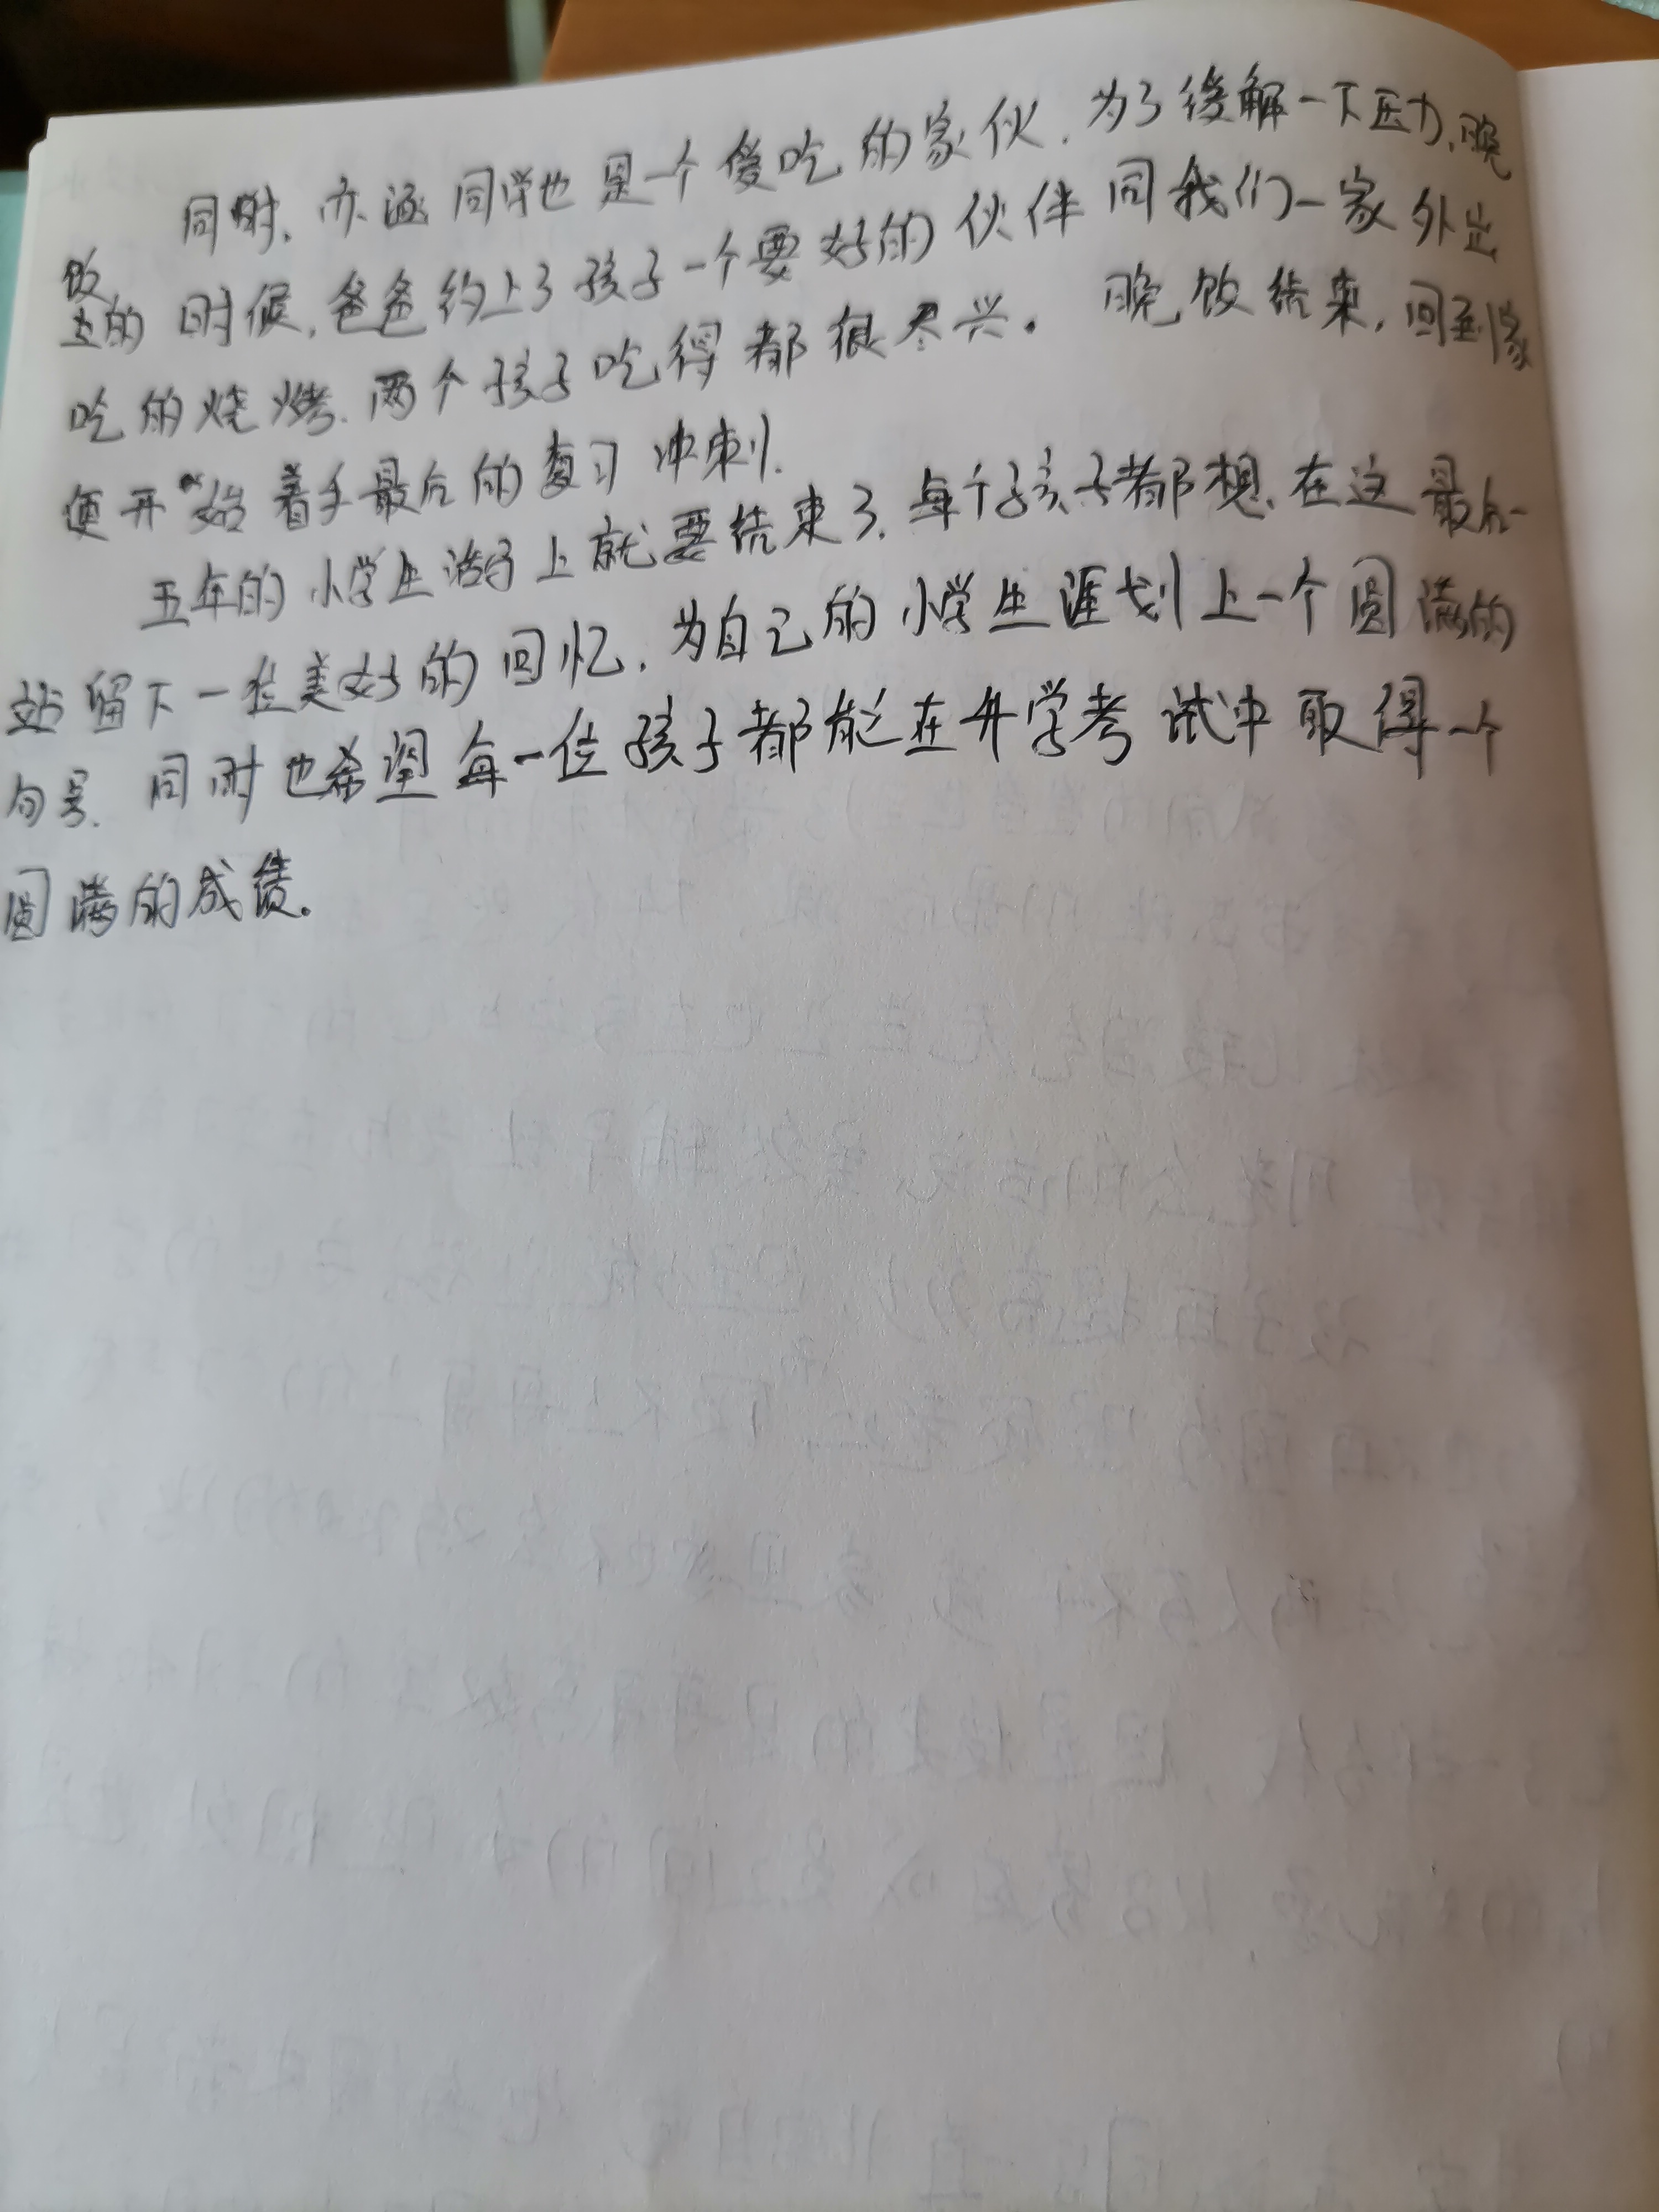 同时,亦涵同学也是一个爱吃的家伙,为了缓解一下压力,晚
饭的时候,爸爸约上了孩子一个要好的伙伴同我们一家外出
吃的烧烤.两个孩子吃得都很尽兴。晚饭结束,回到家
便开始着手最后的复习冲刺.
五年的小学生活马上就要结束了,每个孩子都想,在这最后一
站留下一些美好的回忆,为自己的小学生涯划上一个圆满的
句号.同时也希望每一位孩子都能在升学考试中取得一个
圆满的成绩。